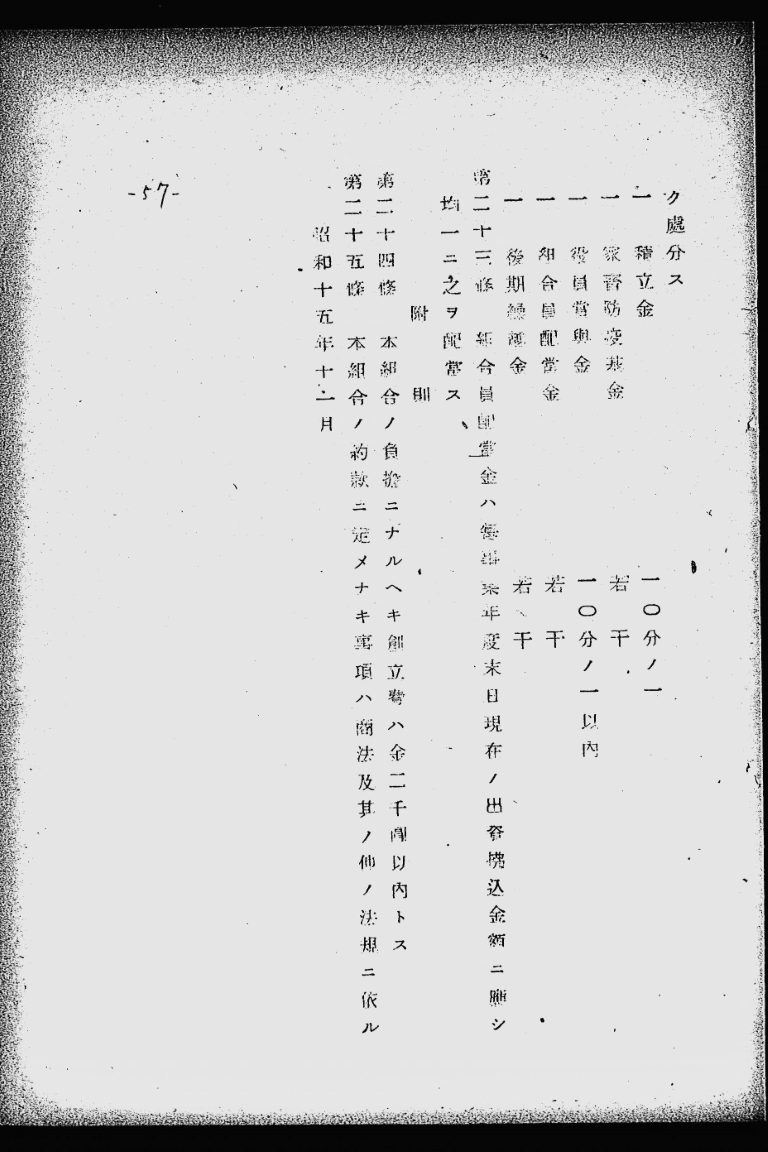 ク處分ス
一　積立金　一〇分ノ一
一　家畜防疫基金　若干
一　役員賞與金　一〇分ノ一以內
一　組合員配當金　若干
一　後期繰越金　若干
第二十三條　組合員配當金ハ每事業年度末日現在ノ出資拂込金額ニ應シ
均一ニ之ヲ配當ス
附則
第二十四條　本組合ノ負擔ニナルヘキ創立費ハ金二千圓以內トス
第二十五條　本組合ノ約款ニ定メナキ事項ハ商法及其ノ他ノ法規ニ依ル
昭和十五年十一月
-57-